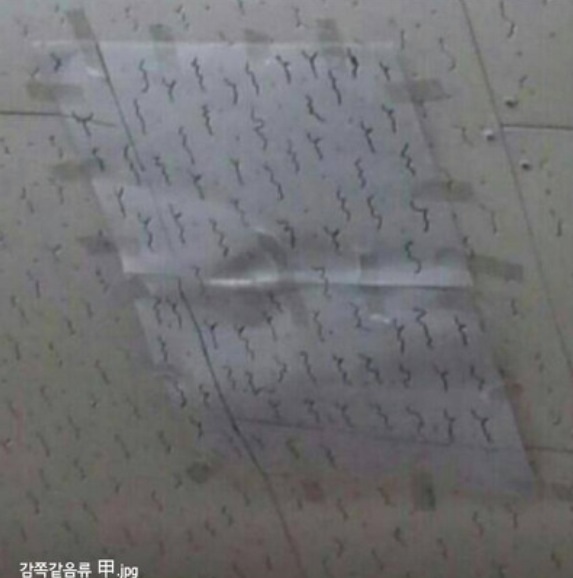 감쪽같음류 甲.jpg